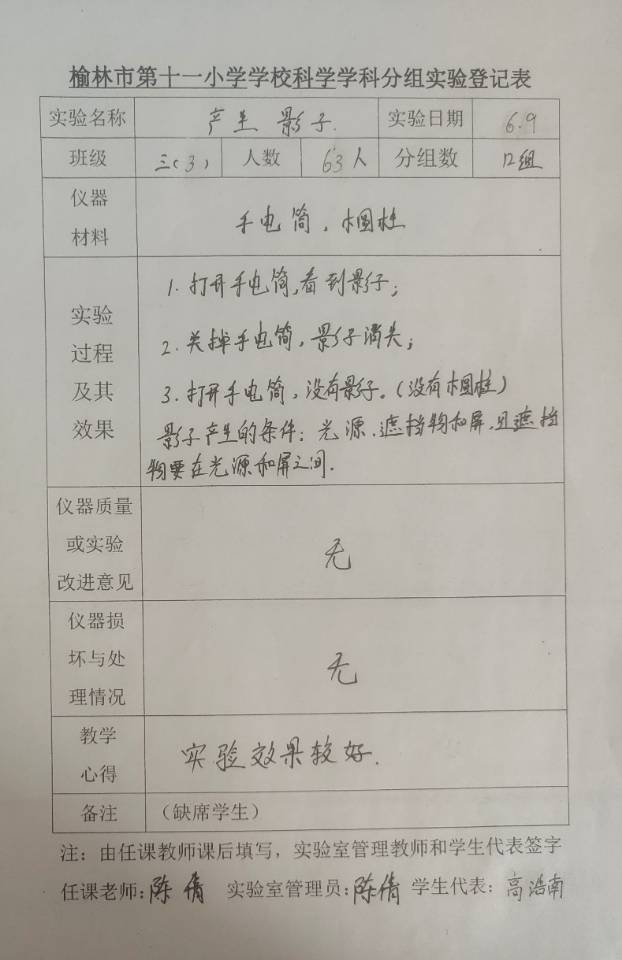 榆林市第十一小学学校科学学科分组实验登记表
实验名称 产生影子. 实验日期 6.9
班级 三(3) 人数 63人 分组数 12组
仪器
材料
手电筒,木圆柱
实验
过程
及其
效果
1.打开手电筒,看到影子;
2.关掉手电筒,影子消失;
3.打开手电筒,没有影子。(没有木圆柱)
影子产生的条件:光源、遮挡物和屏,且遮挡
物要在光源和屏之间.
仪器质量
或实验
改进意见
无
仪器损
坏与处
理情况
无
教学
心得
实验效果较好.
备注 (缺席学生)
注:由任课教师课后填写,实验室管理教师和学生代表签字
任课老师:陈倩 实验室管理员:陈倩 学生代表:高浩南